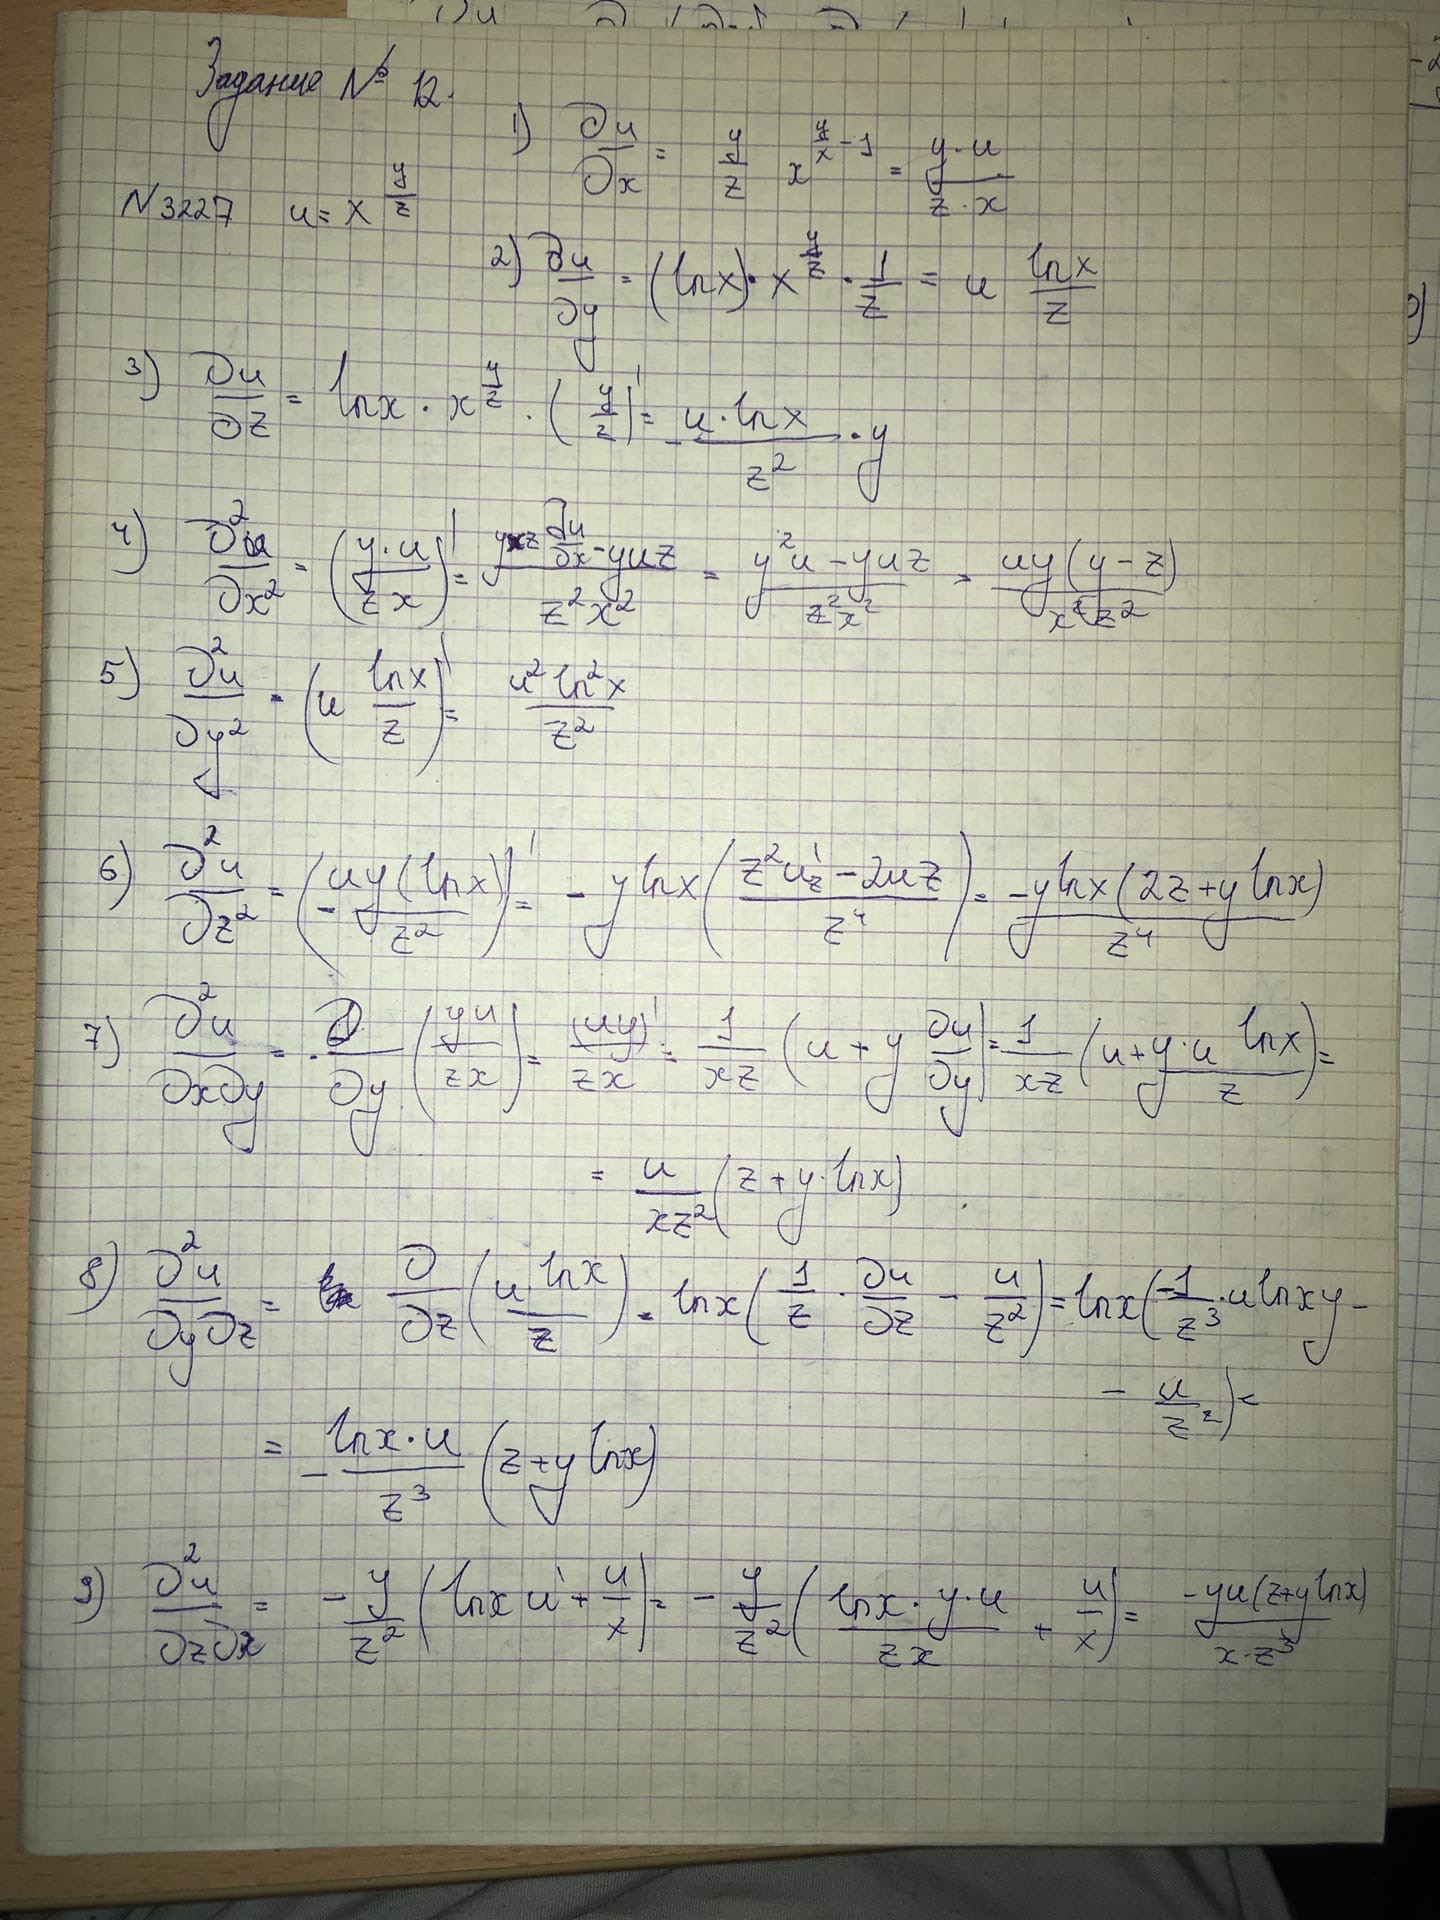 Задание № 12.
N3227 u = x^{y/z}
1) ∂u/∂x = y/z x^{y/x - 1} = y·u/z·x
2) ∂u/∂y = (lnx)·x^{y/z}·1/z = u lnx/z
3) ∂u/∂z = lnx·x^{y/z}·(y/z)' = -u·lnx/z²·y
4) ∂²u/∂x² = (y·u/zx)' = (yxz ∂u/∂x - yuz)/z²x² = (y²u - yuz)/z²x² = uy(y-z)/x²z²
5) ∂²u/∂y² = (u lnx/z)' = u² ln²x/z²
6) ∂²u/∂z² = (-uy(lnx)/z²)' = -ylnx((z²u'z - 2uz)/z⁴) = -ylnx(2z+ylnx)/z⁴
7) ∂²u/∂x∂y = ∂/∂y (yu/zx) = (uy)'/zx = 1/xz (u + y ∂u/∂y) = 1/xz (u+y·u lnx/z) =
= u/xz² (z+y·lnx)
8) ∂²u/∂y∂z = ∂/∂z (u lnx/z) = lnx(1/z·∂u/∂z - u/z²) = lnx(-1/z³·ulnxy -
- u/z²) =
= -lnx·u/z³ (z+ylnx)
9) ∂²u/∂z∂x = -y/z² (lnx u' + u/x) = -y/z² (lnx·y·u/zx + u/x) = -yu(z+ylnx)/x·z³